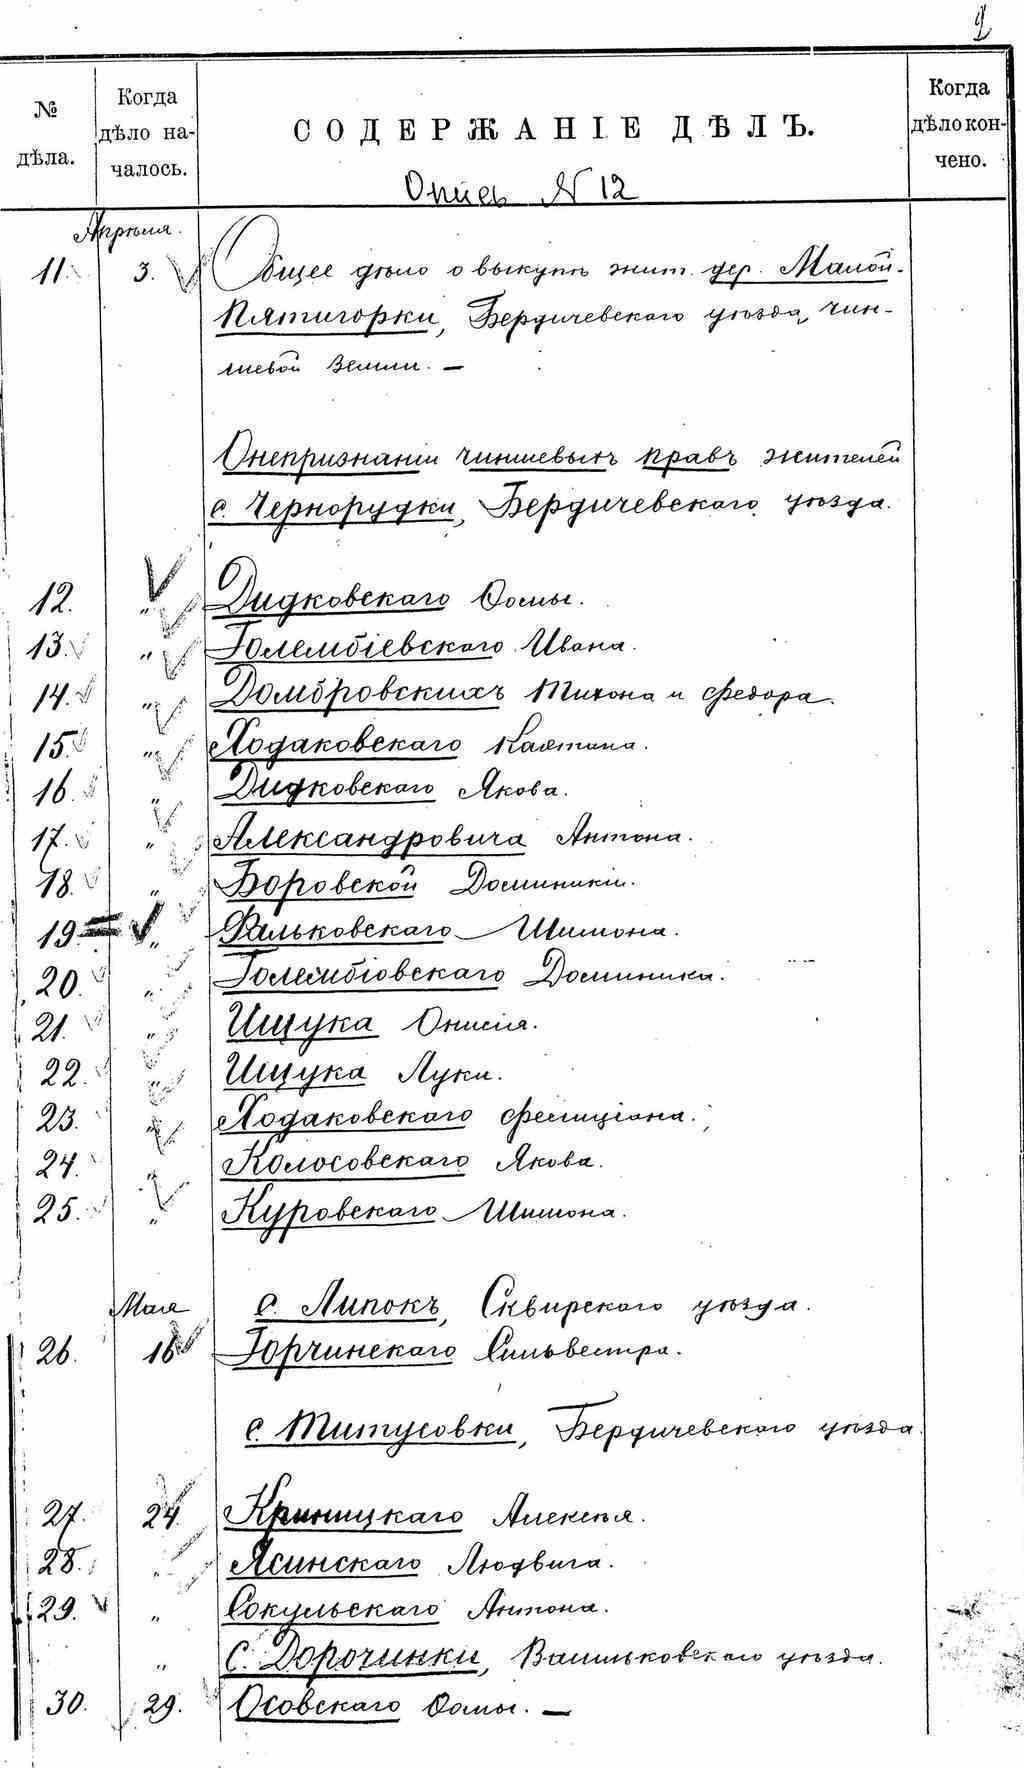 2
№ дѣла.
Когда дѣло началось.
СОДЕРЖАНІЕ ДѢЛЪ.
Когда дѣло кончено.
Опись N 12
Апрѣля.
11. 3. Общее дѣло о выкупѣ жит. дер. Малой-
Пятигорки, Бердичевскаго уѣзда, чин-
шевой земли. —
О непризнаніи чиншевыхъ правъ жителей
с. Чернорудки, Бердичевскаго уѣзда.
12. „ Дидковскаго Ѳомы.
13. „ Голембіевскаго Ивана.
14. „ Домбровскихъ Тихона и Федора.
15. „ Ходаковскаго Каэтана.
16. „ Дидковскаго Якова.
17. „ Александровича Антона.
18. „ Боровской Доминикіи.
19. „ Фальковскаго Шимона.
20. „ Голембіовскаго Доминика.
21. „ Ищука Онисія.
22. „ Ищука Луки.
23. „ Ходаковскаго Фелиціана.
24. „ Колосовскаго Якова.
25. „ Куровскаго Шимона.
Мая с. Липокъ, Сквирскаго уѣзда.
26. 16 Горчинскаго Сильвестра.
с. Титусовки, Бердичевскаго уѣзда.
27. 24. Криницкаго Алексѣя.
28. „ Ясинскаго Людвига.
29. „ Сокульскаго Антона.
„ с. Дорочинки, Васильковскаго уѣзда.
30. 29. Осовскаго Ѳомы. —